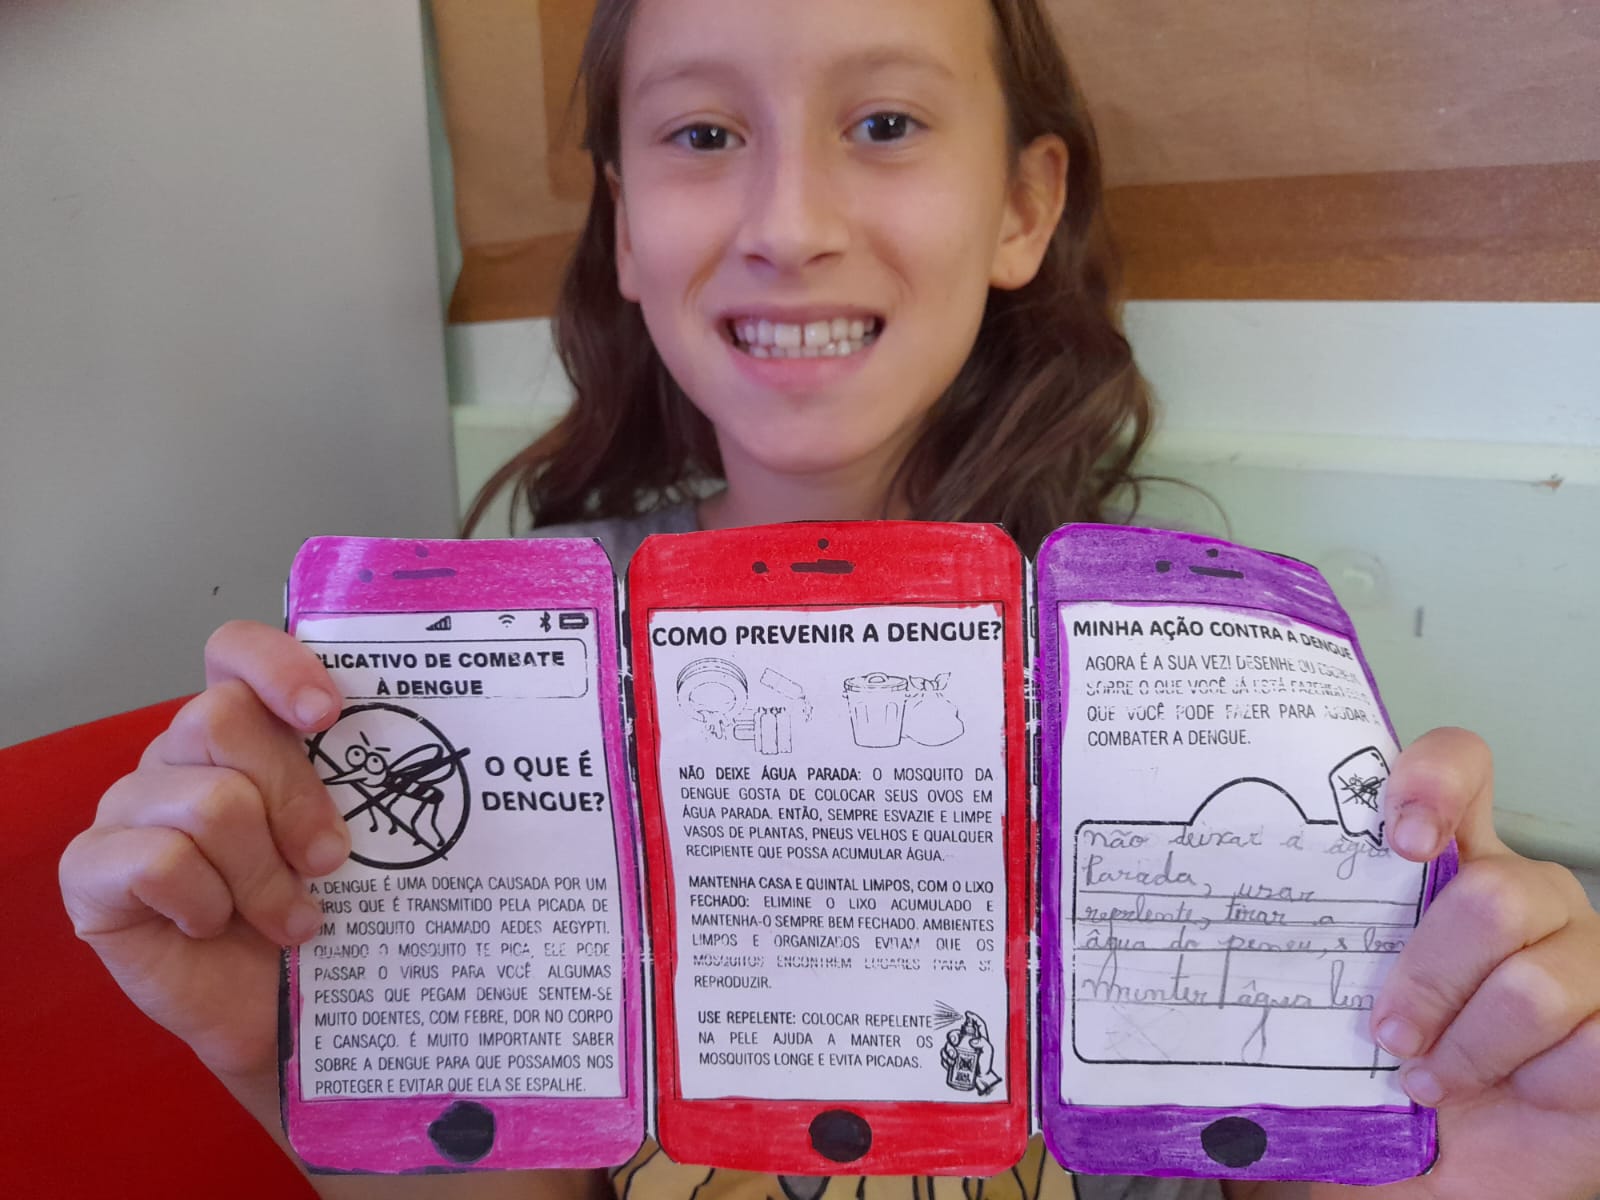 APLICATIVO DE COMBATE
À DENGUE
O QUE É
DENGUE?
A DENGUE É UMA DOENÇA CAUSADA POR UM
VÍRUS QUE É TRANSMITIDO PELA PICADA DE
UM MOSQUITO CHAMADO AEDES AEGYPTI.
QUANDO O MOSQUITO TE PICA, ELE PODE
PASSAR O VÍRUS PARA VOCÊ. ALGUMAS
PESSOAS QUE PEGAM DENGUE SENTEM-SE
MUITO DOENTES, COM FEBRE, DOR NO CORPO
E CANSAÇO. É MUITO IMPORTANTE SABER
SOBRE A DENGUE PARA QUE POSSAMOS NOS
PROTEGER E EVITAR QUE ELA SE ESPALHE.
COMO PREVENIR A DENGUE?
NÃO DEIXE ÁGUA PARADA: O MOSQUITO DA
DENGUE GOSTA DE COLOCAR SEUS OVOS EM
ÁGUA PARADA. ENTÃO, SEMPRE ESVAZIE E LIMPE
VASOS DE PLANTAS, PNEUS VELHOS E QUALQUER
RECIPIENTE QUE POSSA ACUMULAR ÁGUA.
MANTENHA CASA E QUINTAL LIMPOS, COM O LIXO
FECHADO: ELIMINE O LIXO ACUMULADO E
MANTENHA-O SEMPRE BEM FECHADO. AMBIENTES
LIMPOS E ORGANIZADOS EVITAM QUE OS
MOSQUITOS ENCONTREM LUGARES PARA SE
REPRODUZIR.
USE REPELENTE: COLOCAR REPELENTE
NA PELE AJUDA A MANTER OS
MOSQUITOS LONGE E EVITA PICADAS.
MINHA AÇÃO CONTRA A DENGUE
AGORA É A SUA VEZ! DESENHE OU ESCREVA
SOBRE O QUE VOCÊ JÁ ESTÁ FAZENDO
QUE VOCÊ PODE FAZER PARA AJUDAR A
COMBATER A DENGUE.
não deixar a água
Parada, usar
repelente, tirar a
água do peneu, s
água